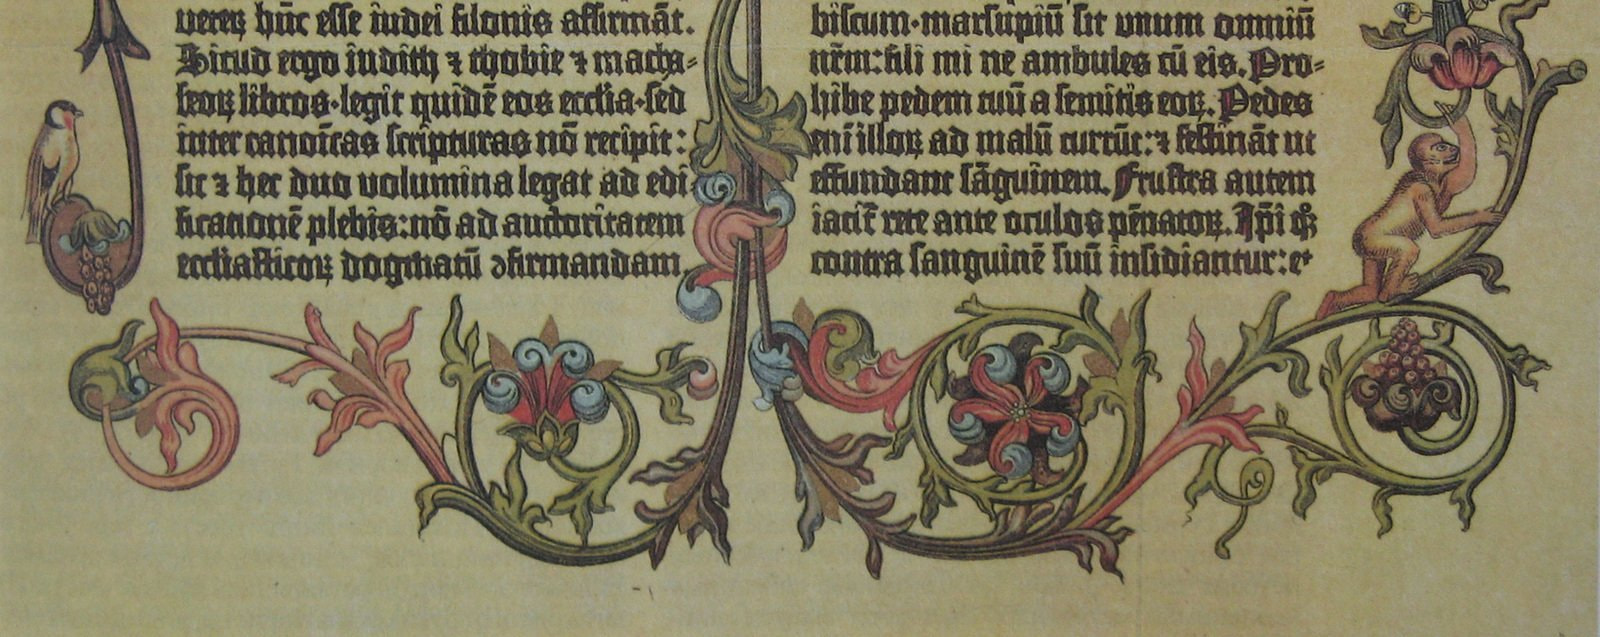 vereꝝ hūc esse iudei filonis affirmāt.
Sicud ergo iudith ⁊ thobie ⁊ macha-
beoꝝ libros·legit quidē eos ecclīa·sed
inter canoīcas scripturas nō recipit:
sic ⁊ hec duo volumina legat ad edi
ficationē plebis:nō ad auctoritatem
ecclīasticoꝝ dogmatū ꝯfirmandam.
biscum·marsupiū sit unum omniū
nr̄m:fili mi ne ambules cū eis. Pro-
hibe pedem tuū a semitis eoꝝ. Pedes
enī illoꝝ ad malū currūt:⁊ festināt ut
effundant sāguinem. Frustra autem
iacit̄ rete ante oculos pēnatoꝝ. Ip̄i qꝫ
contra sanguinē suū insidiantur:et